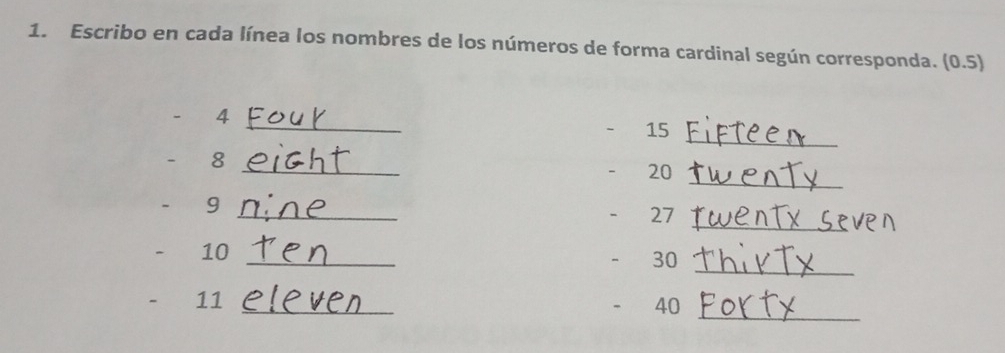 1. Escribo en cada línea los nombres de los números de forma cardinal según corresponda. (0.5)
- 4 Four
- 8 eight
- 9 nine
- 10 ten
- 11 eleven
- 15 Fifteen
- 20 twenty
- 27 twenty seven
- 30 thirty
- 40 Forty